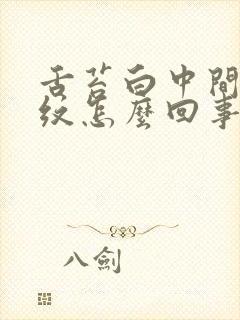 舌苔白中間
紋怎麼回事
八劍